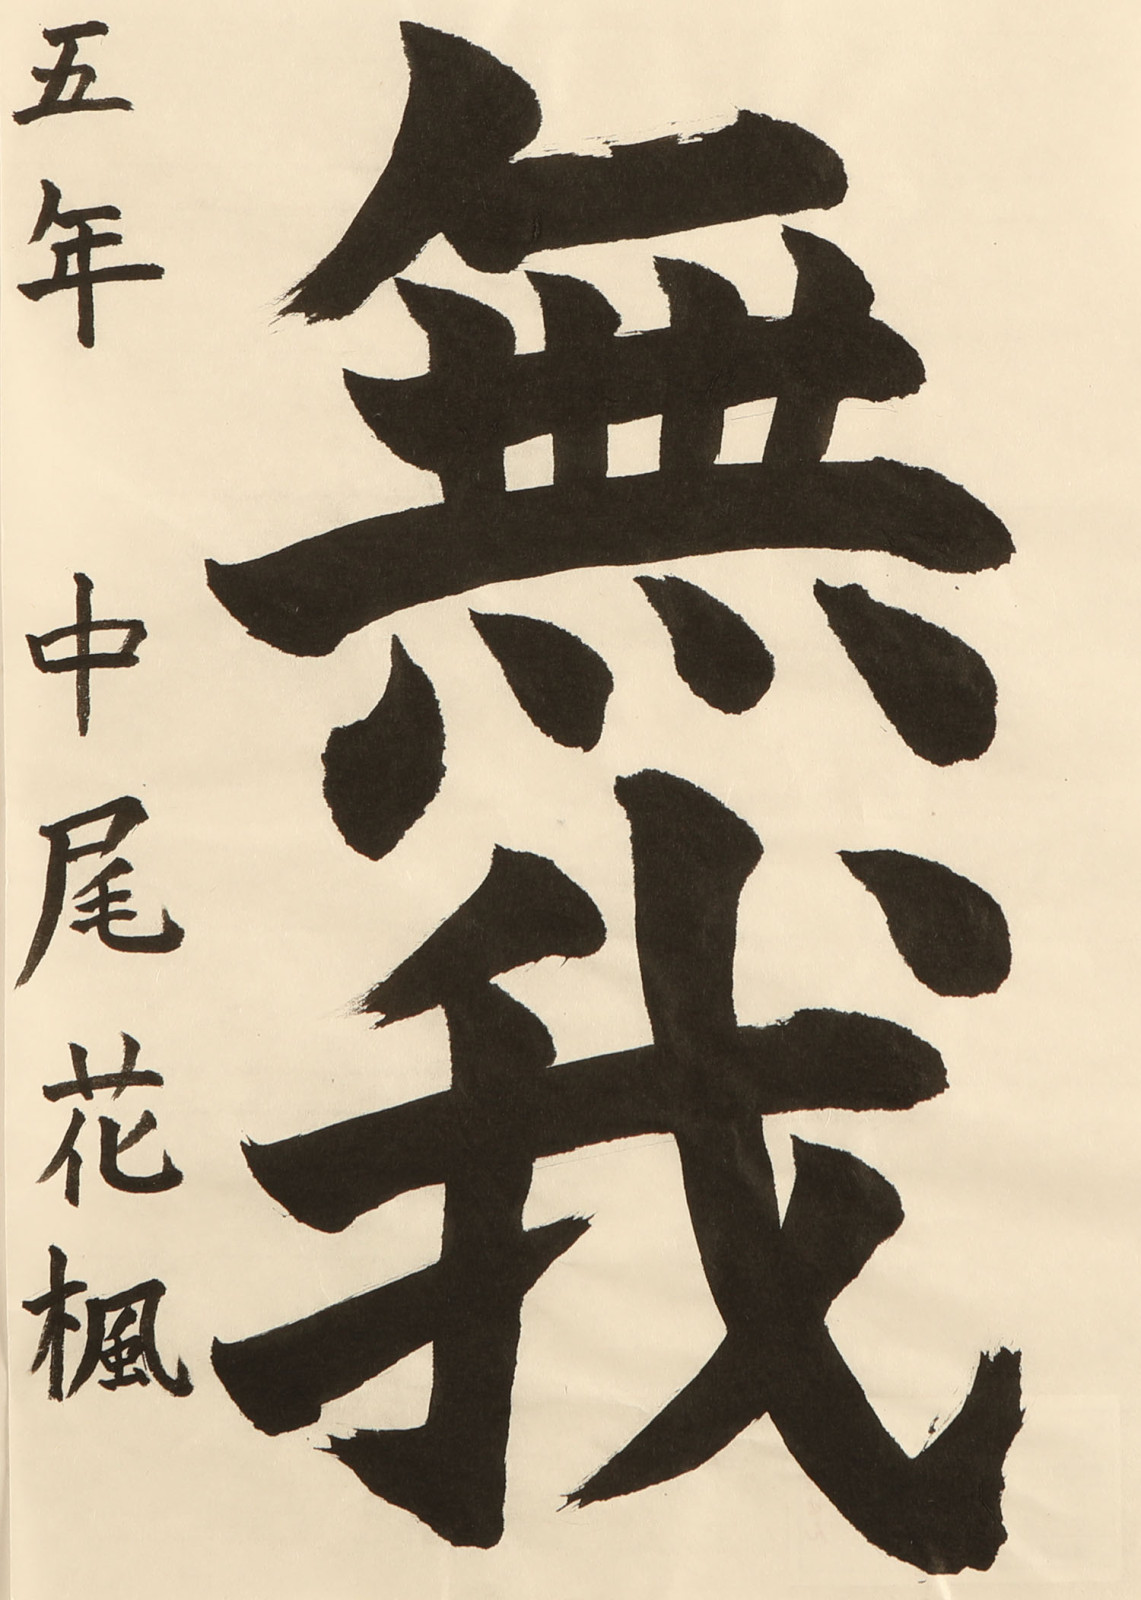 無我
五年 中尾花楓